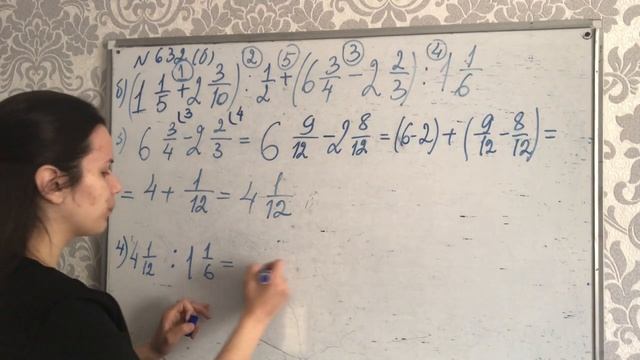 № 632 (б)
① ② ⑤ ③ ④
б) (1 1/5 + 2 3/10) : 1/2 + (6 3/4 - 2 2/3) : 1 1/6
3) 6 3/4 ⌊3 - 2 2/3 ⌊4 = 6 9/12 - 2 8/12 = (6-2) + (9/12 - 8/12) =
= 4 + 1/12 = 4 1/12
4) 4 1/12 : 1 1/6 =